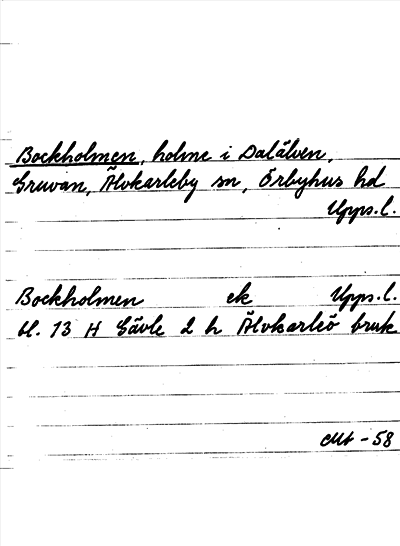 Bockholmen, holme i Dalälven,
Gruvan, Älvkarleby sn, Örbyhus hd
Upps.l.
Bockholmen ek Upps.l.
bl. 13 H Gävle d h Älvkarleö bruk
-58